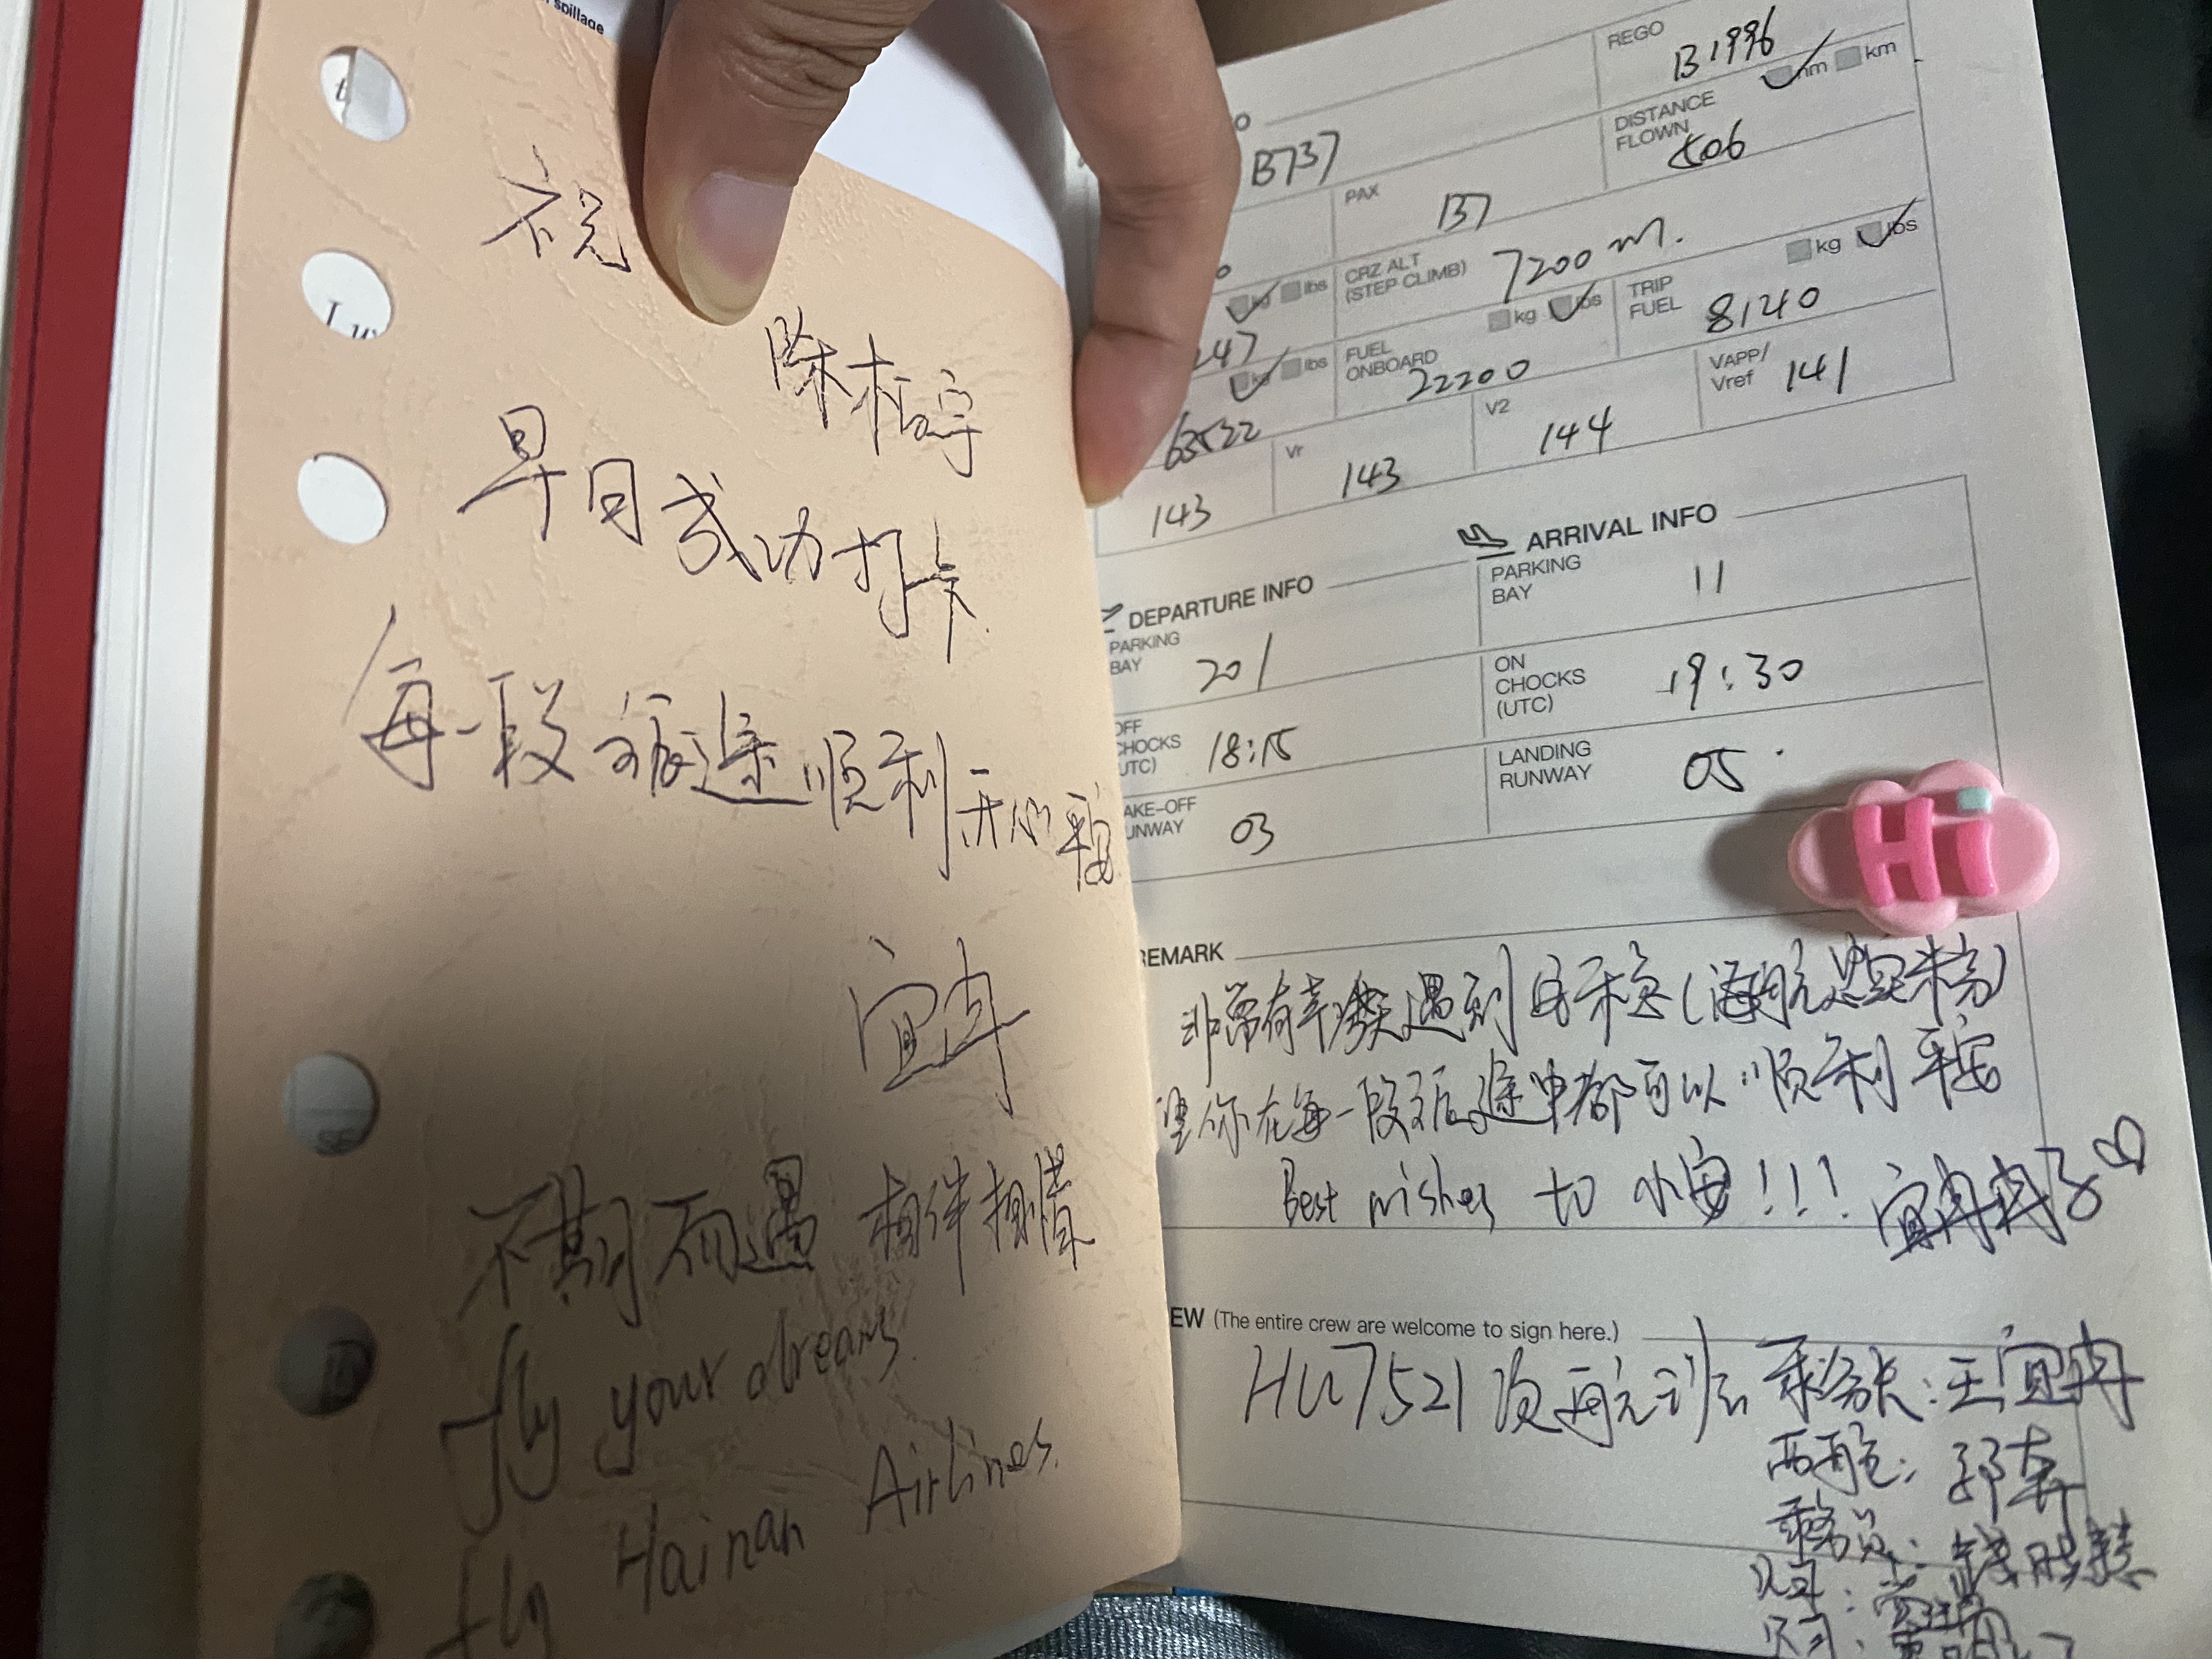 spillage
祝
陈柏宇
早日成功打卡
每一段旅途顺利开心平安
宜冉
不期而遇 相伴相惜
fly your dreams.
fly Hainan Airlines.
REGO B1996
B737
PAX 137
DISTANCE FLOWN 406 nm km
CRZ ALT (STEP CLIMB) 7200 m.
kg lbs
247
FUEL ONBOARD 22200 kg lbs
TRIP FUEL 8120 kg lbs
kg lbs
63522
143
Vr 143
V2 144
VAPP/Vref 141
DEPARTURE INFO
PARKING BAY 201
OFF CHOCKS (UTC) 18:15
TAKE-OFF RUNWAY 03
ARRIVAL INFO
PARKING BAY 11
ON CHOCKS (UTC) 19:30
LANDING RUNWAY 05
Hi
REMARK
非常有幸遇到
望你在每一段旅途中都可以顺利平安
Best wishes to 小安!!! 宜冉冉子
EW (The entire crew are welcome to sign here.)
HU7521次航班 乘务长:王宜冉